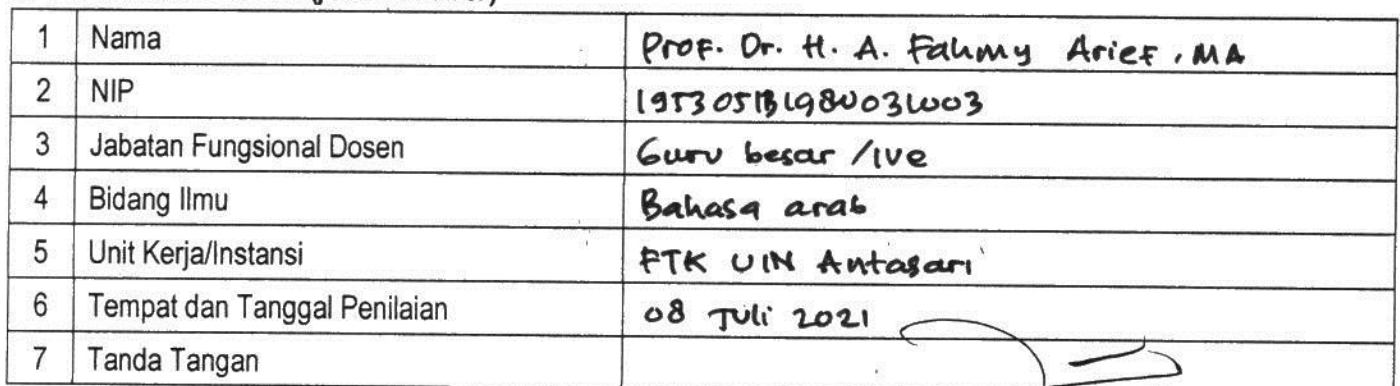 1 Nama Prof. Dr. H. A. Fahmy Arief, MA
2 NIP
3 Jabatan Fungsional Dosen Guru besar /IVe
4 Bidang Ilmu Bahasa arab
5 Unit Kerja/Instansi FTK UIN Antasari
6 Tempat dan Tanggal Penilaian 08 Juli 2021
7 Tanda Tangan